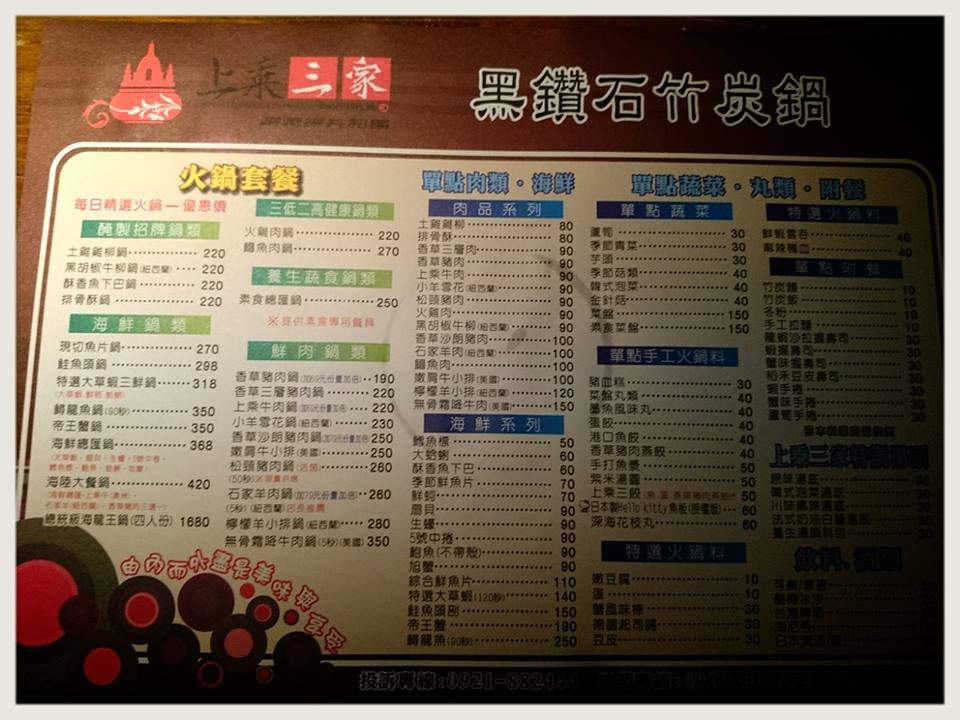 上乘三家
黑鑽石竹炭鍋
火鍋套餐
每日精選火鍋—優惠價
醃製招牌鍋類
土雞雞柳鍋 220
黑胡椒牛柳鍋(紐西蘭) 220
酥香魚下巴鍋 220
排骨酥鍋 220
海鮮鍋類
現切魚片鍋 270
鮭魚頭鍋 298
特選大草蝦三鮮鍋 318
鱘龍魚鍋(90秒) 350
帝王蟹鍋 350
海鮮總匯鍋 368
海陸大餐鍋 420
總統級海龍王鍋(四人份) 1680
三低二高健康鍋類
火雞肉鍋 220
鱘魚肉鍋 270
養生蔬食鍋類
素食總匯鍋 250
※提供素食專用餐具
鮮肉鍋類
香草豬肉鍋 190
香草三層豬肉鍋 220
上乘牛肉鍋 220
小羊肉鍋(紐西蘭) 230
香草沙朗豬肉鍋 250
嫩肩牛小排(美國) 250
松頸豬肉鍋 260
石家羊肉鍋 260
檸檬羊小排鍋(紐西蘭) 280
無骨霜降牛肉鍋(5秒)(美國) 350
由內而外盡是美味與享受
單點肉類・海鮮
肉品系列
土雞雞柳 80
排骨酥 80
香草三層肉 90
香草豬肉 90
上乘牛肉 90
小羊雪花(紐西蘭) 90
松頸豬肉 90
火雞肉 90
黑胡椒牛柳(紐西蘭) 90
香草沙朗豬肉 100
石家羊肉(紐西蘭) 100
鱘魚肉 100
嫩肩牛小排(美國) 100
檸檬羊小排(紐西蘭) 120
無骨霜降牛肉(美國) 150
海鮮系列
鱈魚標 50
大蛤蜊 60
酥香魚下巴 60
季節鮮魚片 70
鮮蚵 90
扇貝 90
生蠔 90
5號中捲 90
鮑魚(不帶殼) 90
旭蟹 90
綜合鮮魚片 110
特選大草蝦(120秒) 140
鮭魚頭剖 150
帝王蟹 190
鱘龍魚(90秒) 250
單點蔬菜・丸類・附餐
單點蔬菜
蘆筍 30
季節青菜 30
芋頭 30
季節菇類 40
韓式泡菜 40
金針菇 40
菜盤 150
素食菜盤 150
單點手工火鍋料
豬血糕 30
菜盤丸類 40
墨魚風味丸 40
蛋餃 40
港口魚餃 40
香草豬肉燕餃 40
手打魚漿 50
紫米湯圓 50
上乘三餃(魚,蛋,香草豬肉燕餃) 50
日本製Hello kitty魚板(授權版) 60
深海花枝丸 60
特選火鍋料
嫩豆腐 10
蛋 10
蟹風味棒 30
德國起司腸 30
豆皮 30
特選火鍋料
鮮蝦雲吞 40
麻辣鴨血 40
單點附餐
竹炭麵 10
竹炭飯 10
冬粉 10
手工拉麵 10
龍蝦沙拉握壽司 30
蝦握壽司 30
蟹味握壽司 30
稻禾豆皮壽司 30
蝦手捲 30
蟹味手捲 30
蘆筍手捲 30
上乘三家特調
原味湯底
韓式泡菜湯底
川味麻辣湯底
法式奶油白醬湯底
養生湯頭料包
飲料.酒類
可樂/雪碧
酸梅冰沙
台灣啤酒
海尼根
日本清酒
投訴專線:0921-882444